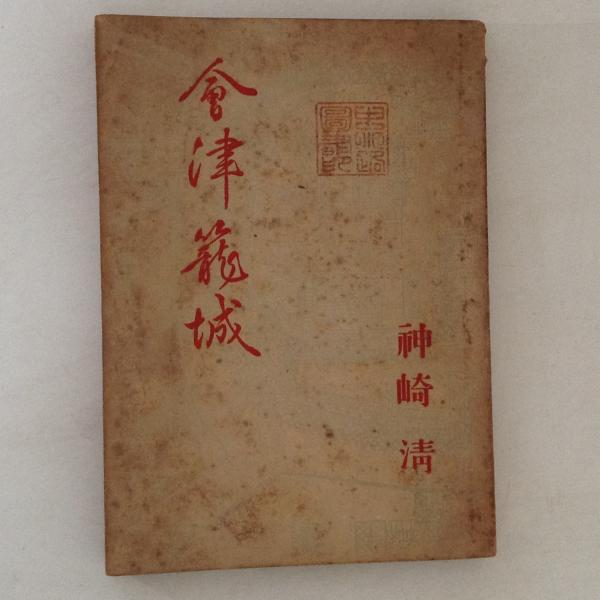 會津籠城
神崎 清